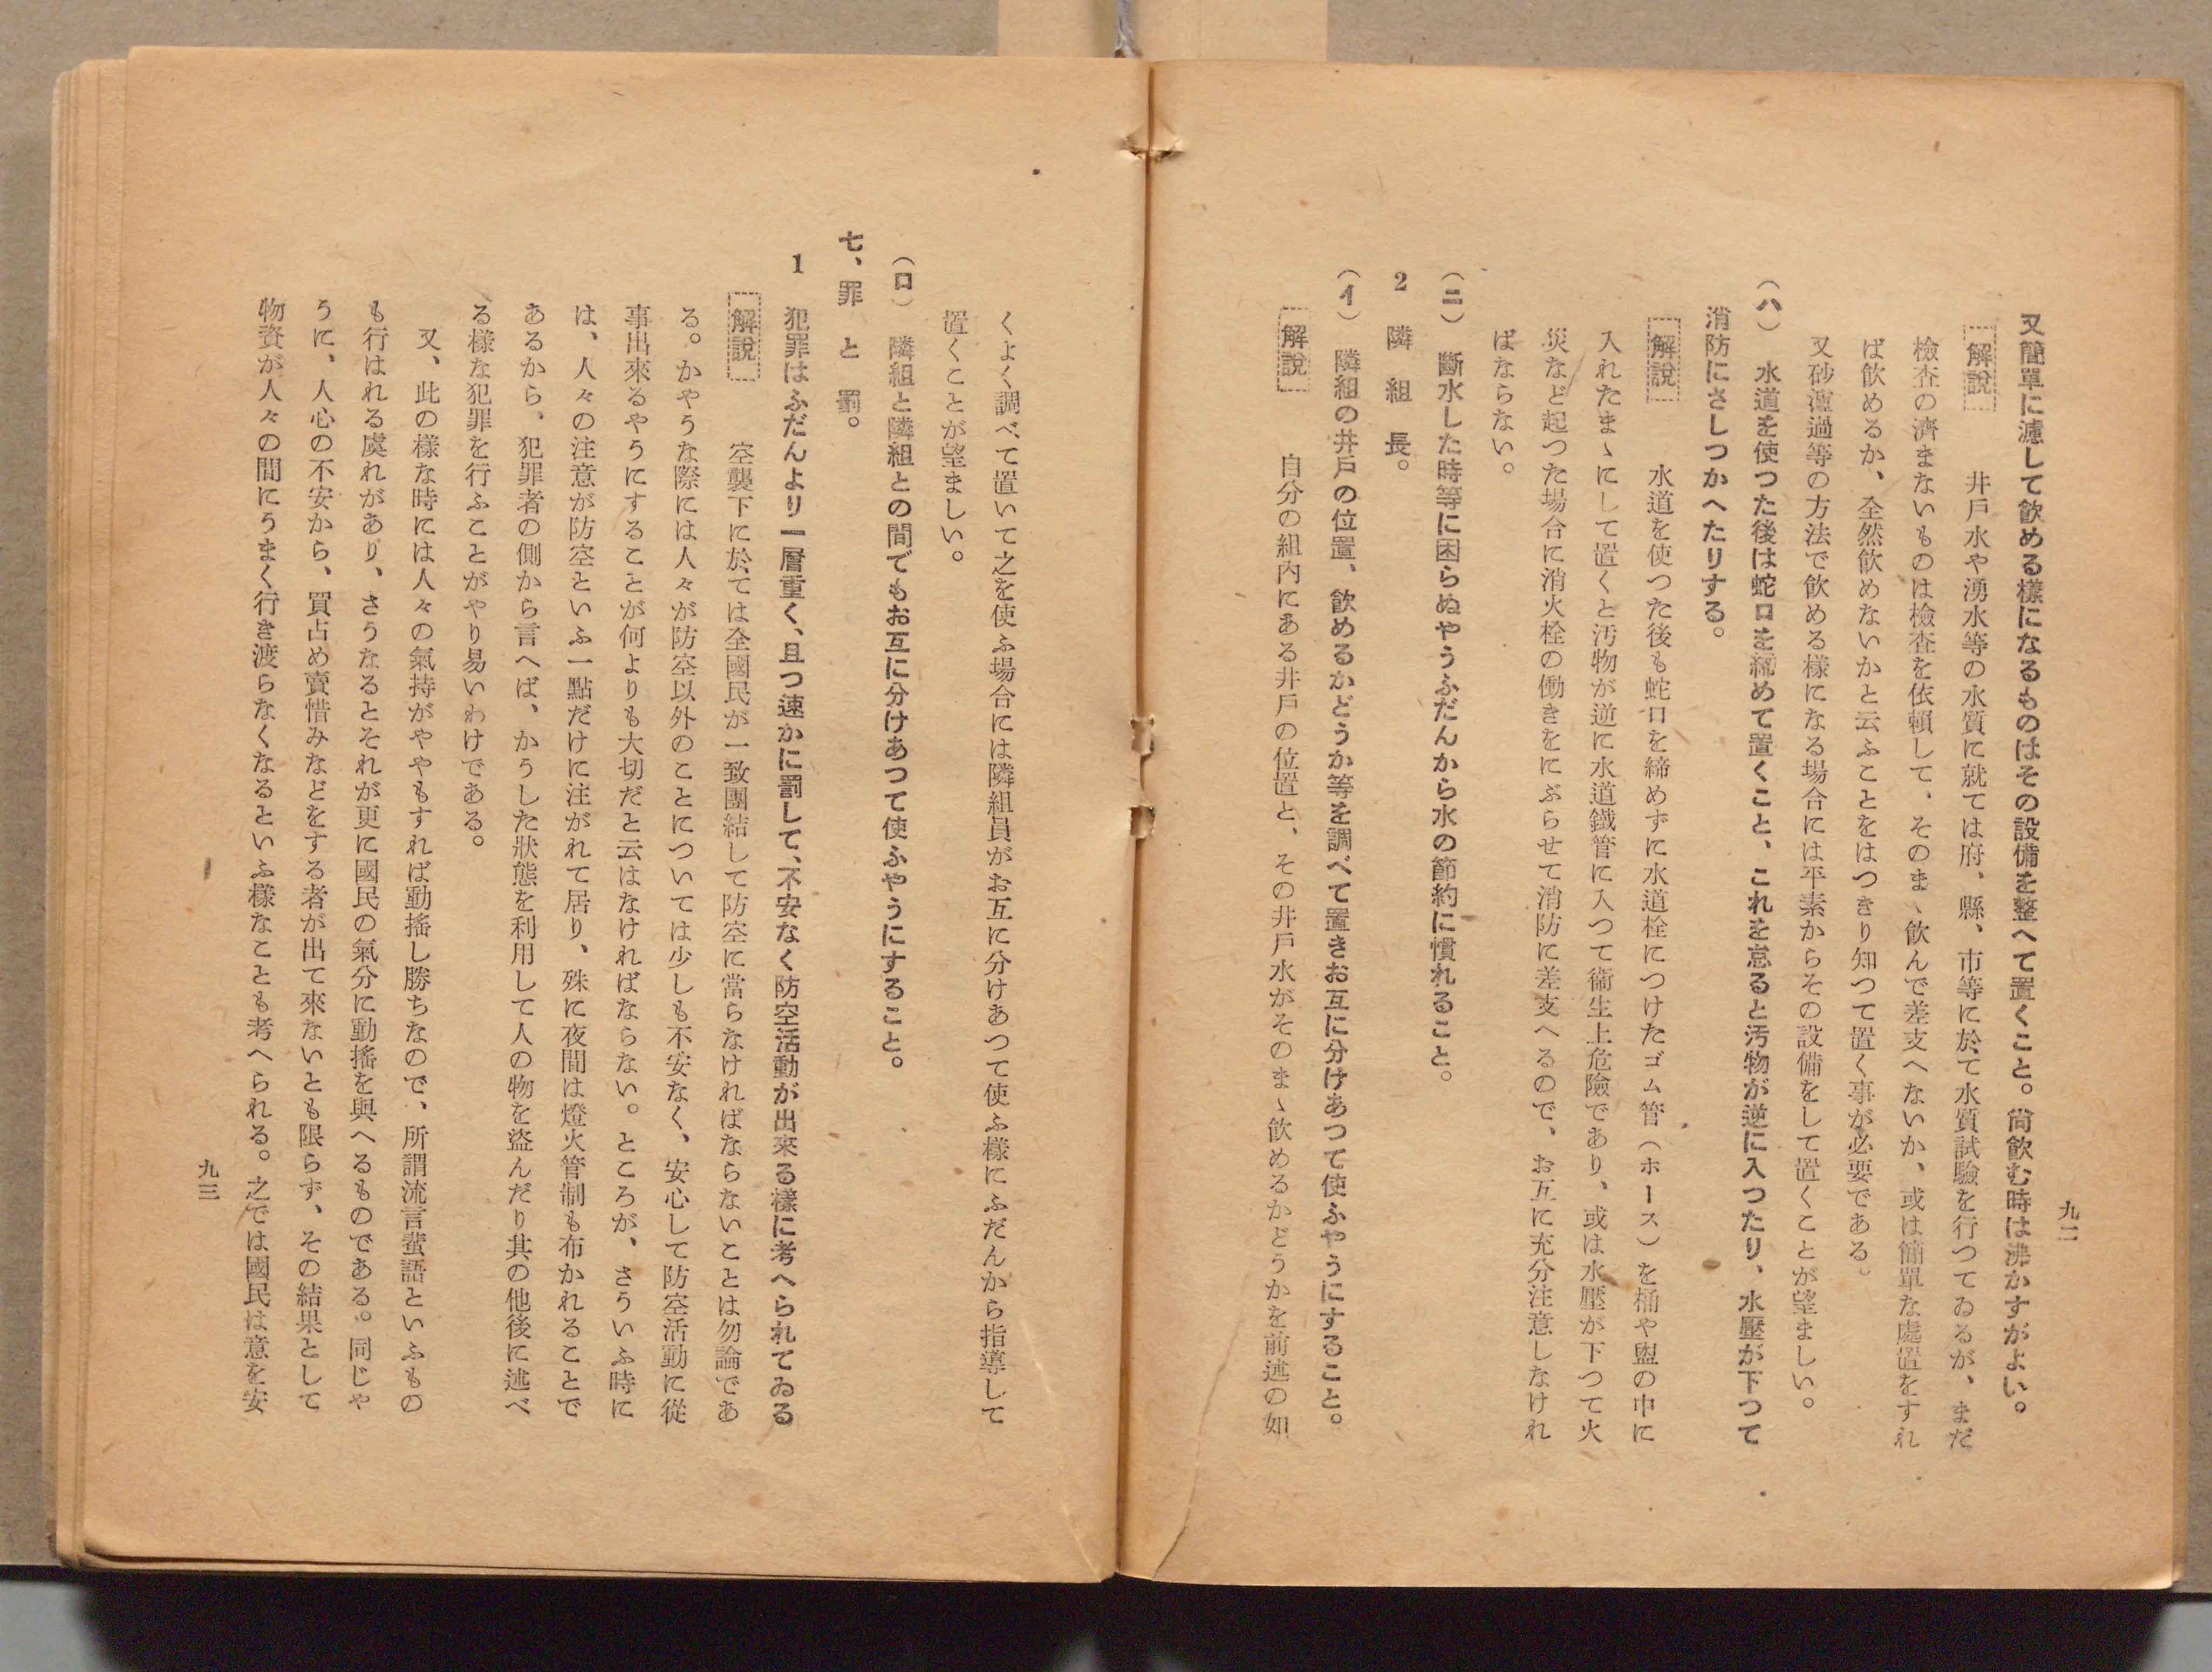 九二
又簡單に濾して飮める樣になるものはその設備を整へて置くこと。尙飮む時は沸かすがよい。
解說　井戶水や湧水等の水質に就ては府、縣、市等に於て水質試驗を行つてゐるが、まだ
檢査の濟まないものは檢査を依賴して、そのまゝ飮んで差支へないか、或は簡單な處置をすれ
ば飮めるか、全然飮めないかと云ふことをはつきり知つて置く事が必要である。
又砂濾過等の方法で飮める樣になる場合には平素からその設備をして置くことが望ましい。
（ハ）　水道を使つた後は蛇口を締めて置くこと、これを怠ると汚物が逆に入つたり、水壓が下つて
消防にさしつかへたりする。
解說　水道を使つた後も蛇口を締めずに水道栓につけたゴム管（ホース）を桶や盥の中に
入れたまゝにして置くと汚物が逆に水道鐵管に入つて衞生上危險であり、或は水壓が下つて火
災など起つた場合に消火栓の働きをにぶらせて消防に差支へるので、お互に充分注意しなけれ
ばならない。
（ニ）　斷水した時等に困らぬやうふだんから水の節約に慣れること。
2　隣組長。
（イ）　隣組の井戶の位置、飮めるかどうか等を調べて置きお互に分けあつて使ふやうにすること。
解說　自分の組內にある井戶の位置と、その井戶水がそのまゝ飮めるかどうかを前述の如
くよく調べて置いて之を使ふ場合には隣組員がお互に分けあつて使ふ樣にふだんから指導して
置くことが望ましい。
（ロ）　隣組と隣組との間でもお互に分けあつて使ふやうにすること。
七、罪と罰。
1　犯罪はふだんより一層重く、且つ速かに罰して、不安なく防空活動が出來る樣に考へられてゐる
解說　空襲下に於ては全國民が一致團結して防空に當らなければならないことは勿論であ
る。かやうな際には人々が防空以外のことについては少しも不安なく、安心して防空活動に從
事出來るやうにすることが何よりも大切だと云はなければならない。ところが、さういふ時に
は、人々の注意が防空といふ一點だけに注がれて居り、殊に夜間は燈火管制も布かれることで
あるから、犯罪者の側から言へば、かうした狀態を利用して人の物を盜んだり其の他後に述べ
る樣な犯罪を行ふことがやり易いわけである。
又、此の樣な時には人々の氣持がややもすれば動搖し勝ちなので、所謂流言蜚語といふもの
も行はれる虞れがあり、さうなるとそれが更に國民の氣分に動搖を與へるものである。同じや
うに、人心の不安から、買占め賣惜みなどをする者が出て來ないとも限らず、その結果として
物資が人々の間にうまく行き渡らなくなるといふ樣なことも考へられる。之では國民は意を安
九三